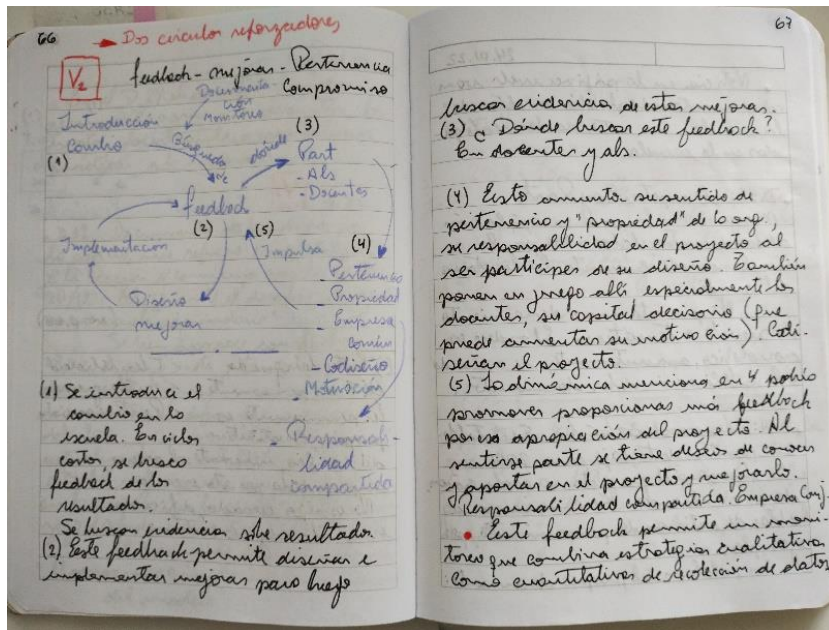 66
→ Dos circulos reforzadores
V2
feedback - mejoras - Pertenencia
Compromiso
Documenta-
ción
Monitoreo
Introducción
Cambio
(1)
Búsqueda
de
dónde
(3)
Part
- Als
- Docentes
feedback
(2)
(5)
Impulsa
(4)
Implementación
Diseño
mejoras
- Pertenencia
- Propiedad
- Empresa
común
- Codiseño
- Motivación
- Responsabi-
lidad
compartida
(1) Se introduce el
cambio en la
escuela. En ciclos
cortos, se busca
feedback de los
resultados.
Se buscan evidencias sobre resultados.
(2) Este feedback permite diseñar e
implementar mejoras para luego
67
24.01.22
buscar evidencias de estas mejoras.
(3) ¿Dónde buscar este feedback?
En docentes y als.
(4) Esto aumenta su sentido de
pertenencia y "propiedad" de la org.,
su responsabilidad en el proyecto al
ser partícipes de su diseño. También
ponen en juego allí especialmente los
docentes, su capital decisorio (que
puede aumentar su motivación). Codi-
señan el proyecto.
(5) La dinámica menciona en 4 podría
promover proporcionar más feedback
por esa apropiación del proyecto. Al
sentirse parte se tiene deseos de conocer
y aportar en el proyecto y mejorarlo.
Responsabilidad compartida. Empresa Conj.
• Este feedback permite un moni-
toreo que combina estrategias cualitativas
como cuantitativas de recolección de datos